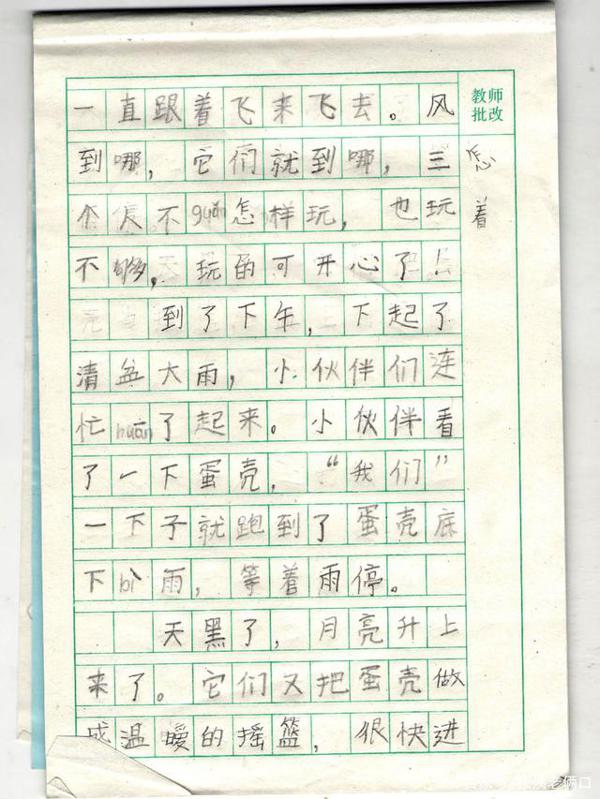 教师
批改
一直跟着飞来飞去。风
到哪，它们就到哪，三
个人不guǎn怎样玩，也玩
不够，玩的可开心了！
到了下午，下起了
清盆大雨，小伙伴们连
忙huān了起来。小伙伴看
了一下蛋壳，“我们”
一下子就跑到了蛋壳底
下bì雨，等着雨停。
天黑了，月亮升上
来了。它们又把蛋壳做
成温暖的摇篮，很快进
怎
着